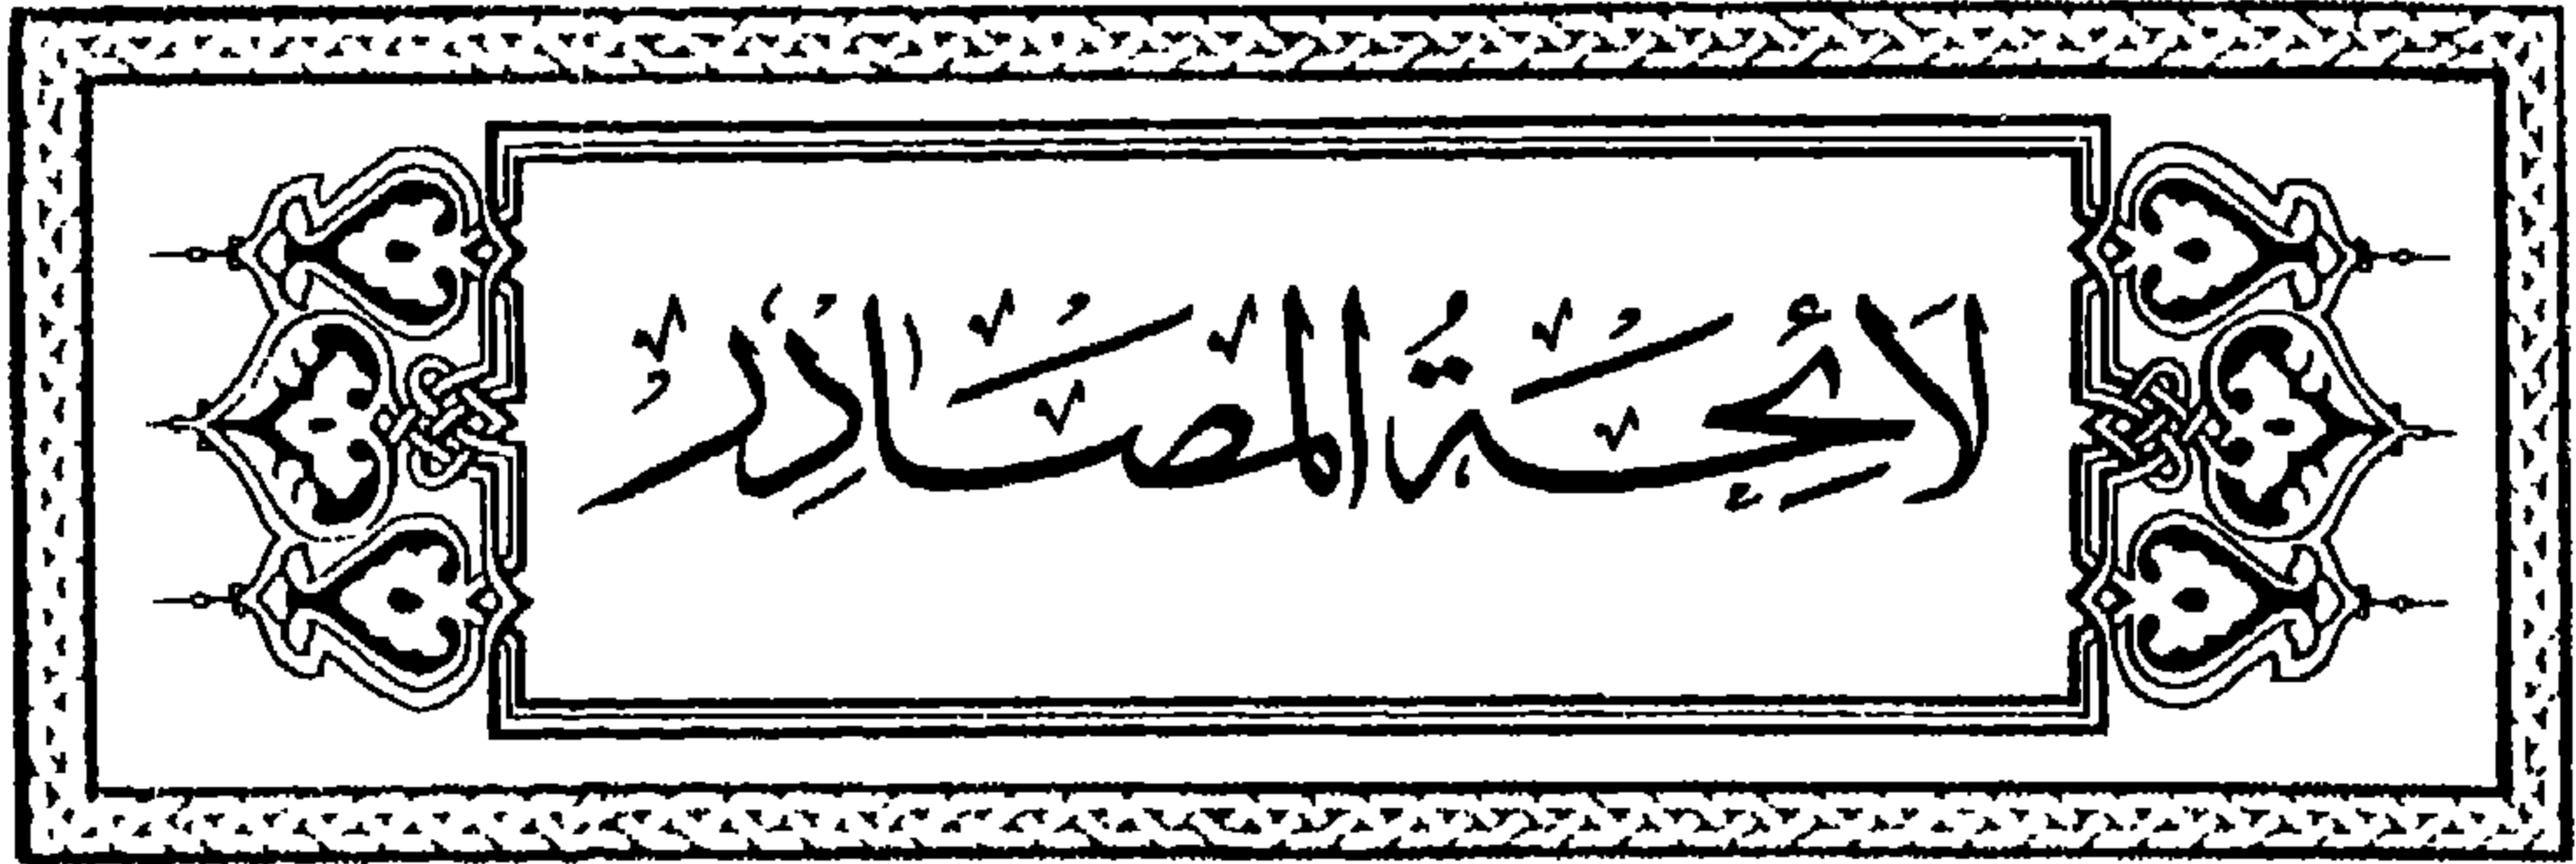 لَائِحَةُ الْمَصَادِرِ